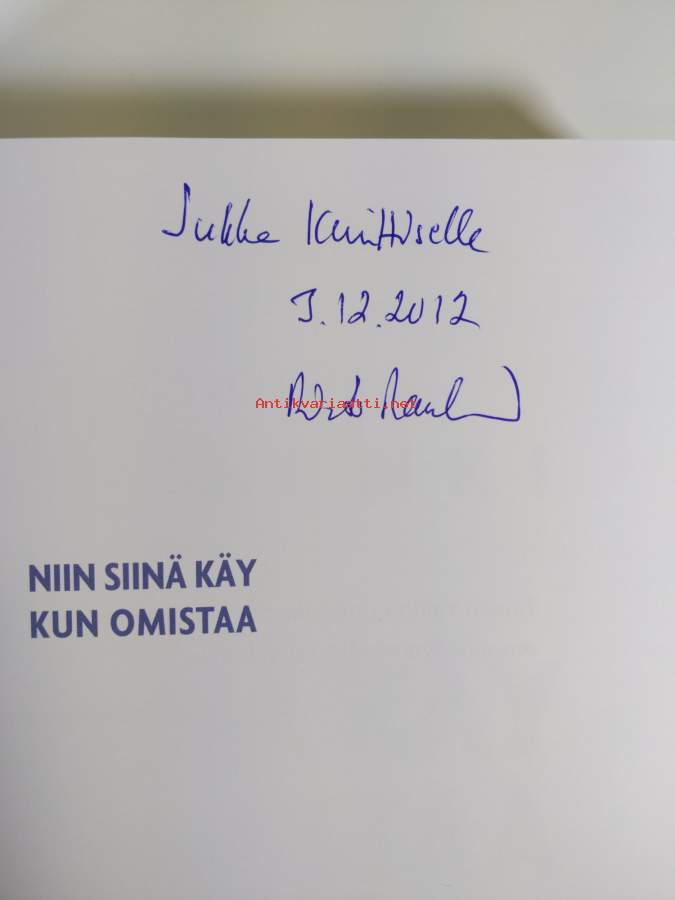 Jukka Kinittiselle
3.12.2012
Antikvariaatti.net
NIIN SIINÄ KÄY
KUN OMISTAA